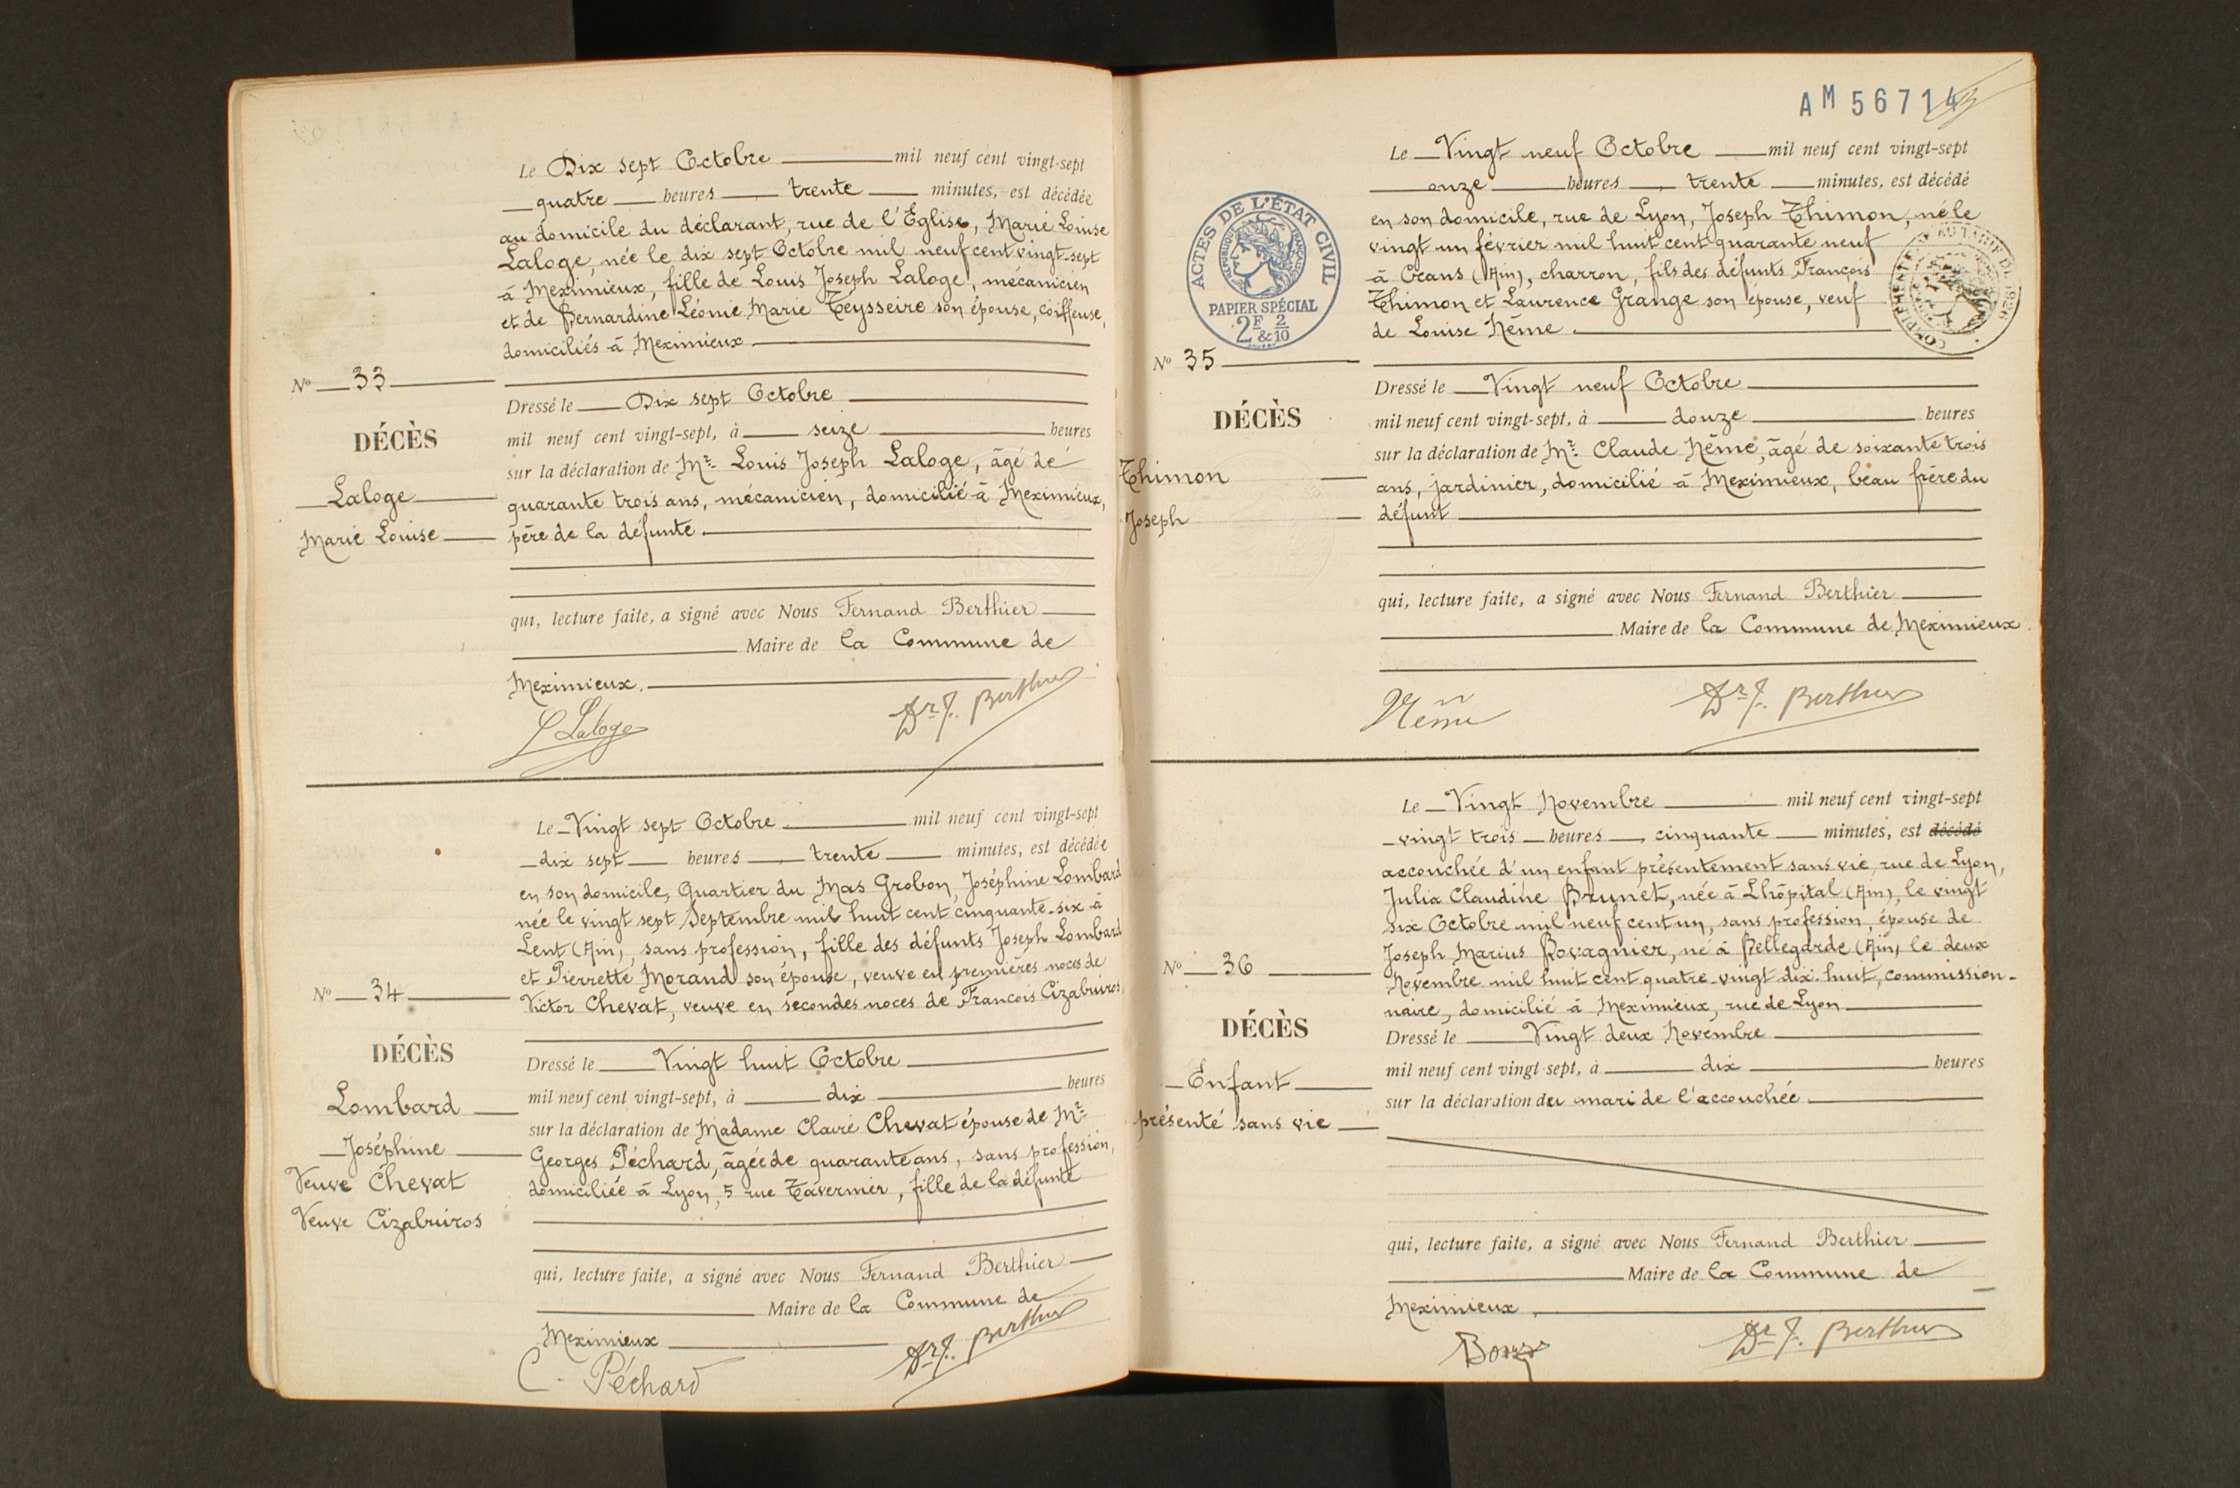 Le Dix sept Octobre mil neuf cent vingt-sept
quatre heures, trente minutes, est décédée
au domicile du déclarant, rue de l'Église, Marie Louise
Laloge, née le dix sept Octobre mil neuf cent vingt-sept
à Meximieux, fille de Louis Joseph Laloge, mécanicien
et de Bernardine Léonie Marie Teysseire son épouse, coiffeuse,
domiciliés à Meximieux
No 33
DÉCÈS
Laloge
Marie Louise
Dressé le Dix sept Octobre
mil neuf cent vingt-sept, à seize heures
sur la déclaration de Mr Louis Joseph Laloge, âgé de
quarante trois ans, mécanicien, domicilié à Meximieux,
père de la défunte.
qui, lecture faite, a signé avec Nous Fernand Berthier
Maire de la Commune de
Meximieux.
L Laloge Dr F. Berthier
Le Vingt sept Octobre mil neuf cent vingt-sept
dix sept heures, trente minutes, est décédée
en son domicile, Quartier du Mas Grobon, Joséphine Lombard
née le vingt sept Septembre mil huit cent cinquante-six à
Lent (Ain), sans profession, fille des défunts Joseph Lombard
et Pierrette Morand son épouse, veuve en premières noces de
Victor Chevat, veuve en secondes noces de François Cizabuiros
No 34
DÉCÈS
Lombard
Joséphine
Veuve Chevat
Veuve Cizabuiros
Dressé le Vingt huit Octobre
mil neuf cent vingt-sept, à dix heures
sur la déclaration de Madame Claire Chevat épouse de Mr
Georges Péchard, âgée de quarante ans, sans profession,
domiciliée à Lyon, 5 rue Tavernier, fille de la défunte
qui, lecture faite, a signé avec Nous Fernand Berthier
Maire de la Commune de
Meximieux
C. Péchard Dr F. Berthier
AM 56714
Le Vingt neuf Octobre mil neuf cent vingt-sept
onze heures, trente minutes, est décédé
en son domicile, rue de Lyon, Joseph Thimon, né le
vingt un février mil huit cent quarante neuf
à Crans (Ain), charron, fils des défunts François
Thimon et Laurence Grange son épouse, veuf
de Louise Néme.
ACTES DE L'ÉTAT CIVIL
RÉPUBLIQUE FRANÇAISE
PAPIER SPÉCIAL
2F & 2/10
No 35
DÉCÈS
Thimon
Joseph
Dressé le Vingt neuf Octobre
mil neuf cent vingt-sept, à douze heures
sur la déclaration de Mr Claude Néme, âgé de soixante trois
ans, jardinier, domicilié à Meximieux, beau frère du
défunt
qui, lecture faite, a signé avec Nous Fernand Berthier
Maire de la Commune de Meximieux.
Néme Dr F. Berthier
Le Vingt Novembre mil neuf cent vingt-sept
vingt trois heures, cinquante minutes, est décédé
accouchée d'un enfant présentement sans vie, rue de Lyon,
Julia Claudine Brunet, née à Lhôpital (Ain), le vingt
six Octobre mil neuf cent un, sans profession, épouse de
Joseph Marius Bovagnier, né à Bellegarde (Ain) le deux
Novembre mil huit cent quatre-vingt dix-huit, commission-
naire, domicilié à Meximieux, rue de Lyon
No 36
DÉCÈS
Enfant
présenté sans vie
Dressé le Vingt deux Novembre
mil neuf cent vingt-sept, à dix heures
sur la déclaration du mari de l'accouchée
qui, lecture faite, a signé avec Nous Fernand Berthier
Maire de la Commune de
Meximieux.
Dr F. Berthier